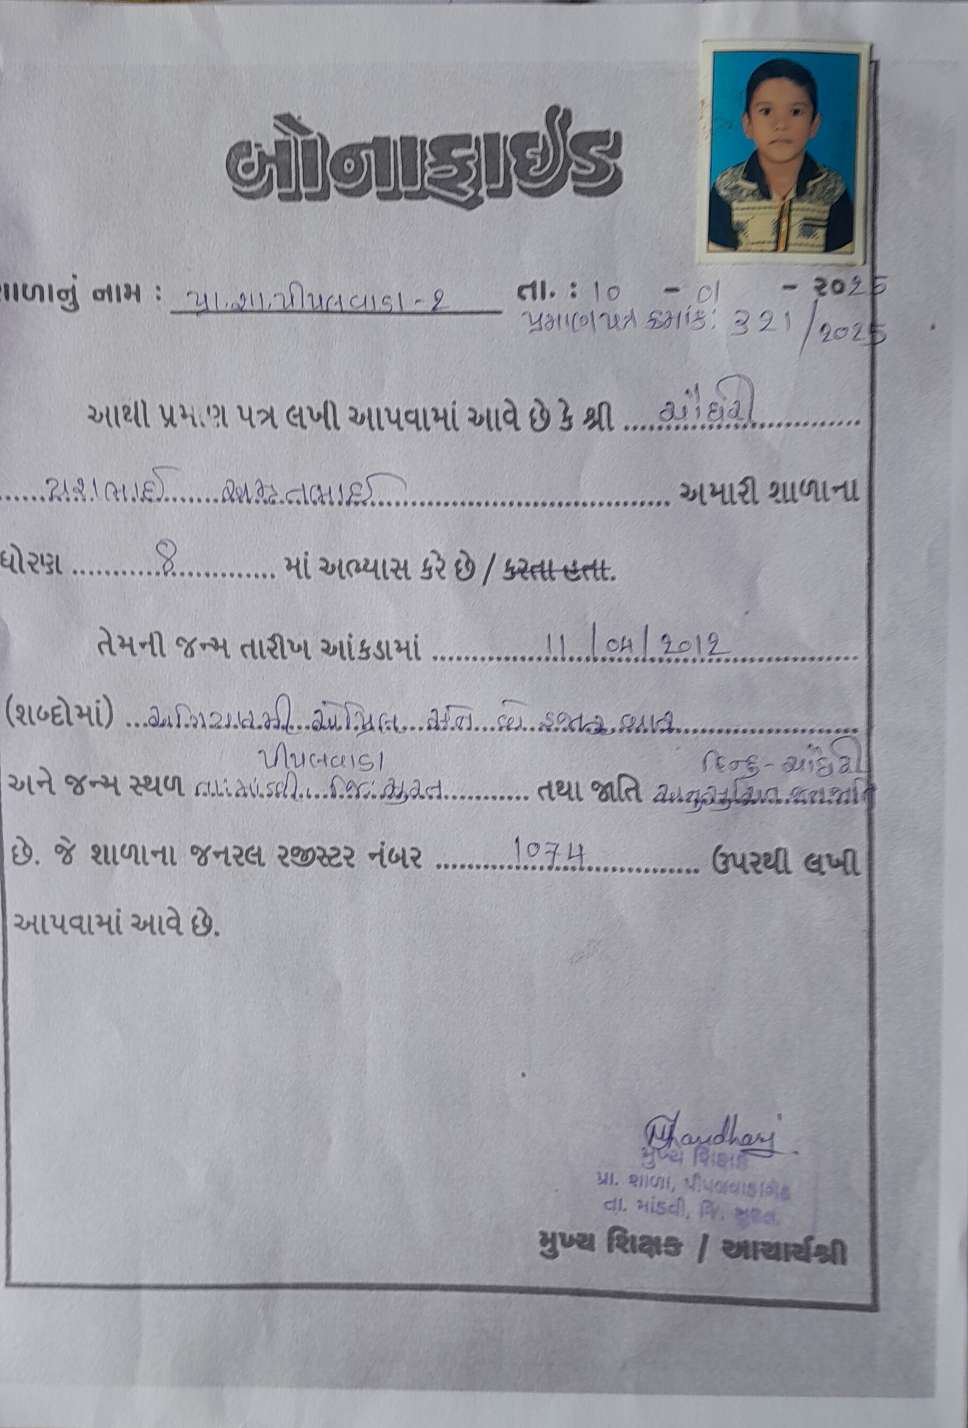 બોનાફાઈડ
શાળાનું નામ : પ્રા.શા.પીપલવાડા-૨ તા. : 10 - 01 - ૨૦25
પ્રમાણપત્ર ક્રમાંક: 321/2025
આથી પ્રમાણ પત્ર લખી આપવામાં આવે છે કે શ્રી ચૌધરી
યશભાઈ અમૃતભાઈ અમારી શાળાના
ધોરણ 8 માં અભ્યાસ કરે છે / કરતા હતા.
તેમની જન્મ તારીખ આંકડામાં 11/04/2012
(શબ્દોમાં) અગિયારમી એપ્રિલ સન બે હજાર બાર
પીપલવાડા હિન્દુ-ચૌધરી
અને જન્મ સ્થળ તા.માંડવી જિ.સુરત તથા જાતિ અનુસુચિત જનજાતિ
છે. જે શાળાના જનરલ રજીસ્ટર નંબર 1074 ઉપરથી લખી
આપવામાં આવે છે.
Chaudhary
મુખ્ય શિક્ષક
પ્રા. શાળા, પીપલવાડા
તા. માંડવી, જિ. સુરત
મુખ્ય શિક્ષક / આચાર્યશ્રી